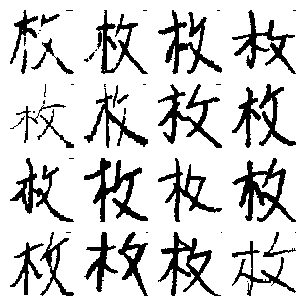 枚枚枚枚
枚枚枚枚
枚枚枚枚
枚枚枚枚